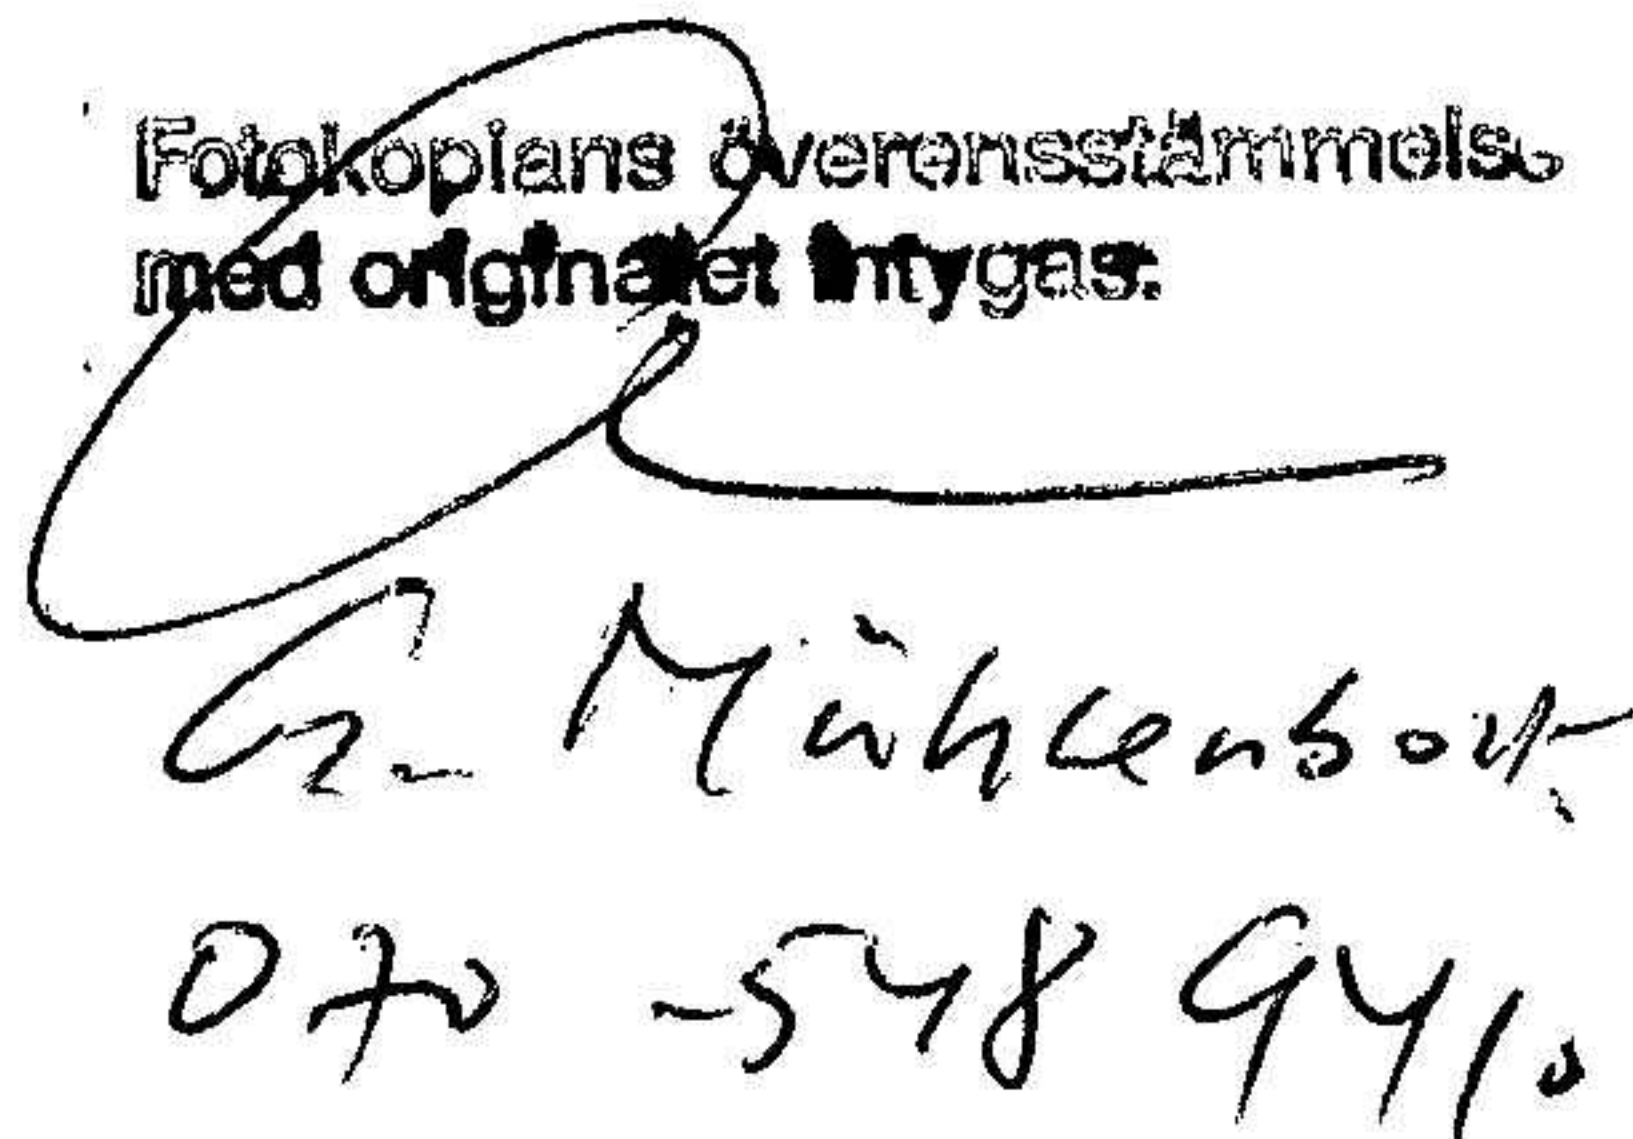 Fotokopians överensstämmelse
med originalet intygas.
G. Mühlenbock
070-548 9410